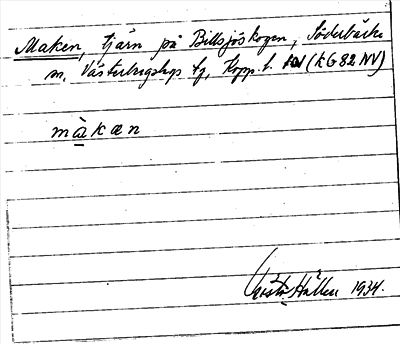 Maken, tjärn på Billsjöskogen, Söderbärke
sn, Västerbergslags tg, Kopp. l. (KG82NV)
màkæn
Gösta Hållen 1934.